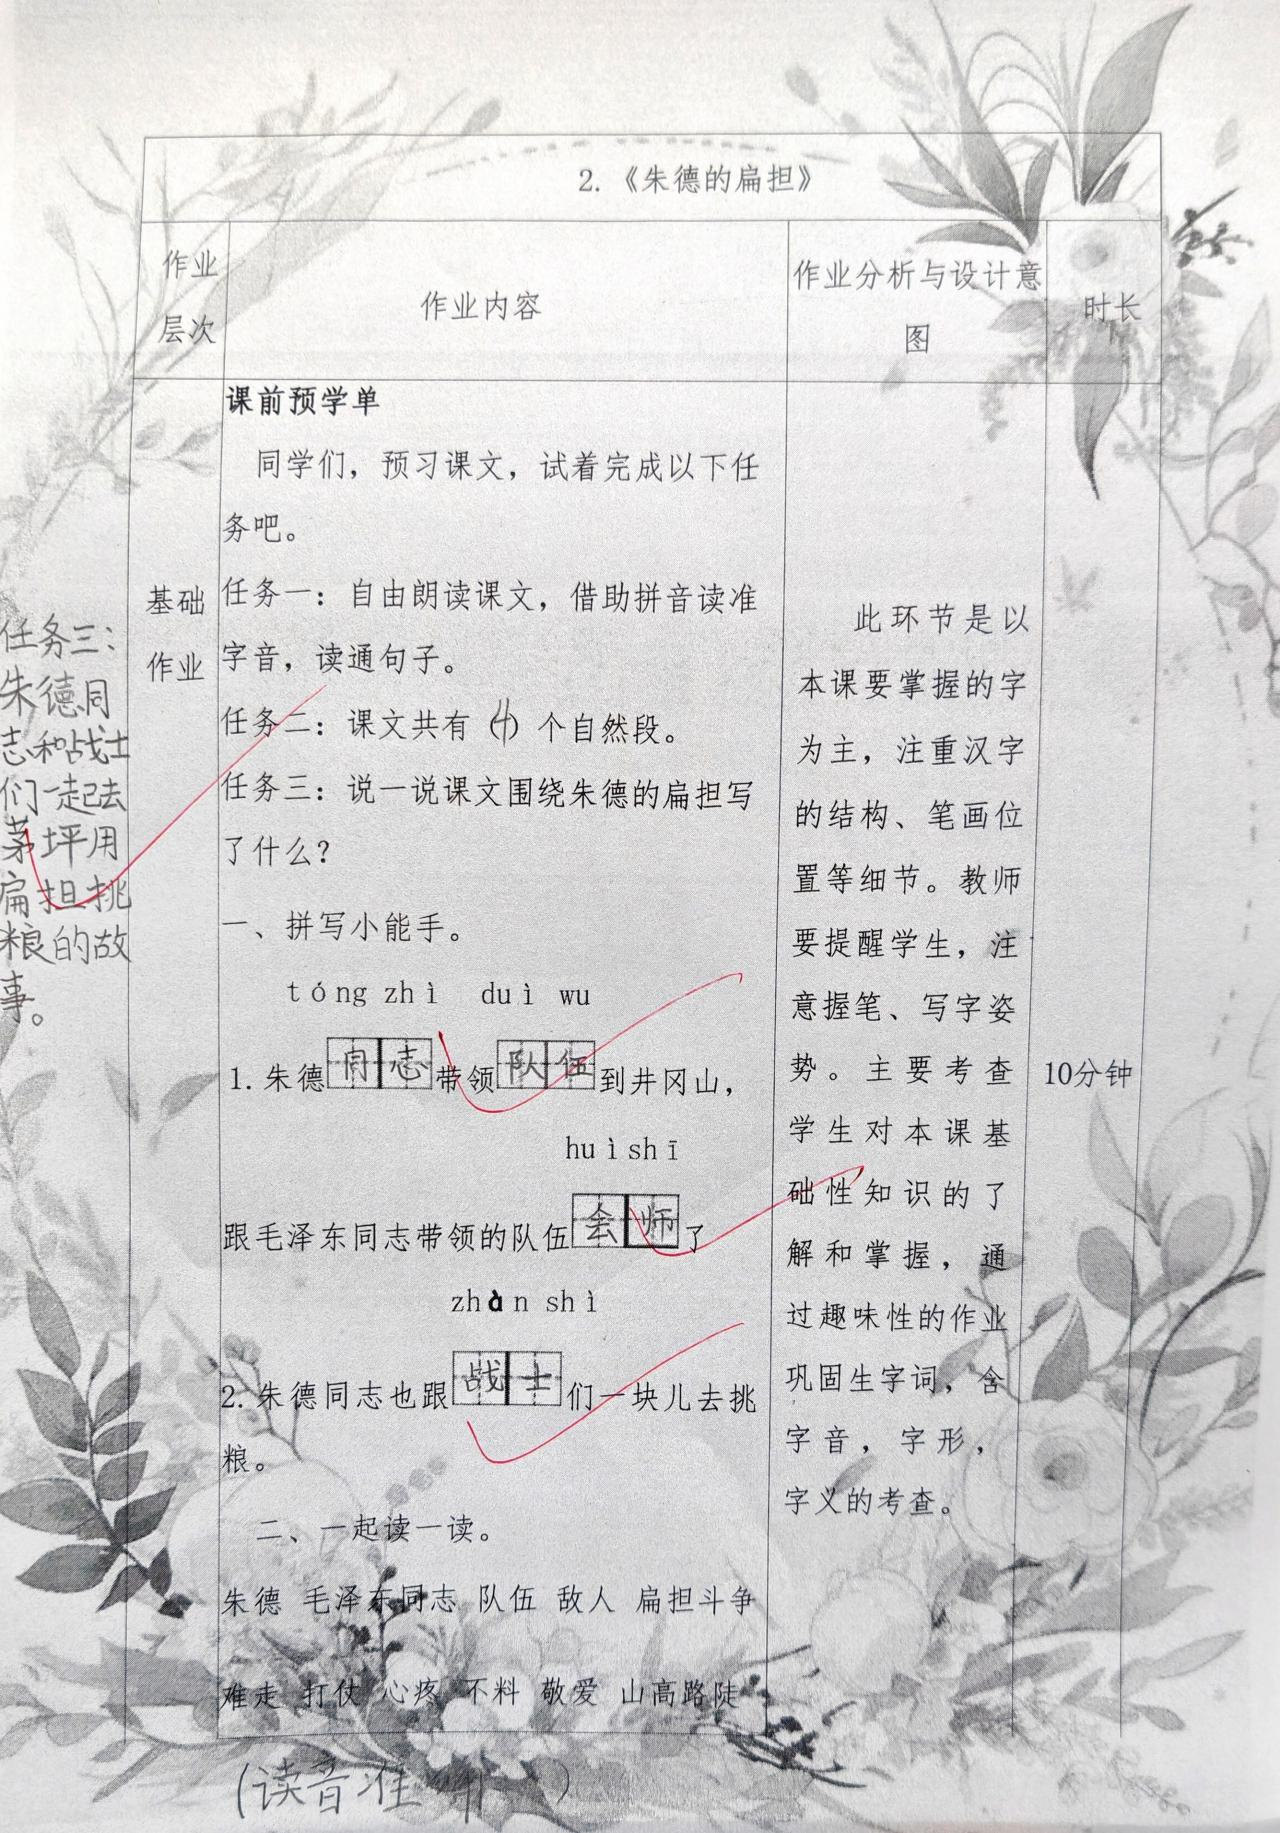 2.《朱德的扁担》
作业
层次
作业内容
作业分析与设计意
图
时长
基础
作业
课前预学单
同学们，预习课文，试着完成以下任
务吧。
任务一：自由朗读课文，借助拼音读准
字音，读通句子。
任务二：课文共有（4）个自然段。
任务三：说一说课文围绕朱德的扁担写
了什么？
一、拼写小能手。
tóng zhì duì wu
1.朱德同志带领队伍到井冈山，
huì shī
跟毛泽东同志带领的队伍会师了
zhàn shì
2.朱德同志也跟战士们一块儿去挑
粮。
二、一起读一读。
朱德 毛泽东同志 队伍 敌人 扁担斗争
难走 打仗 心疼 不料 敬爱 山高路陡
此环节是以
本课要掌握的字
为主，注重汉字
的结构、笔画位
置等细节。教师
要提醒学生，注
意握笔、写字姿
势。主要考查
学生对本课基
础性知识的了
解和掌握，通
过趣味性的作业
巩固生字词，含
字音，字形，
字义的考查。
10分钟
任务三：
朱德同
志和战士
们一起去
茅坪用
扁担挑
粮的故
事。
（读音准 ）